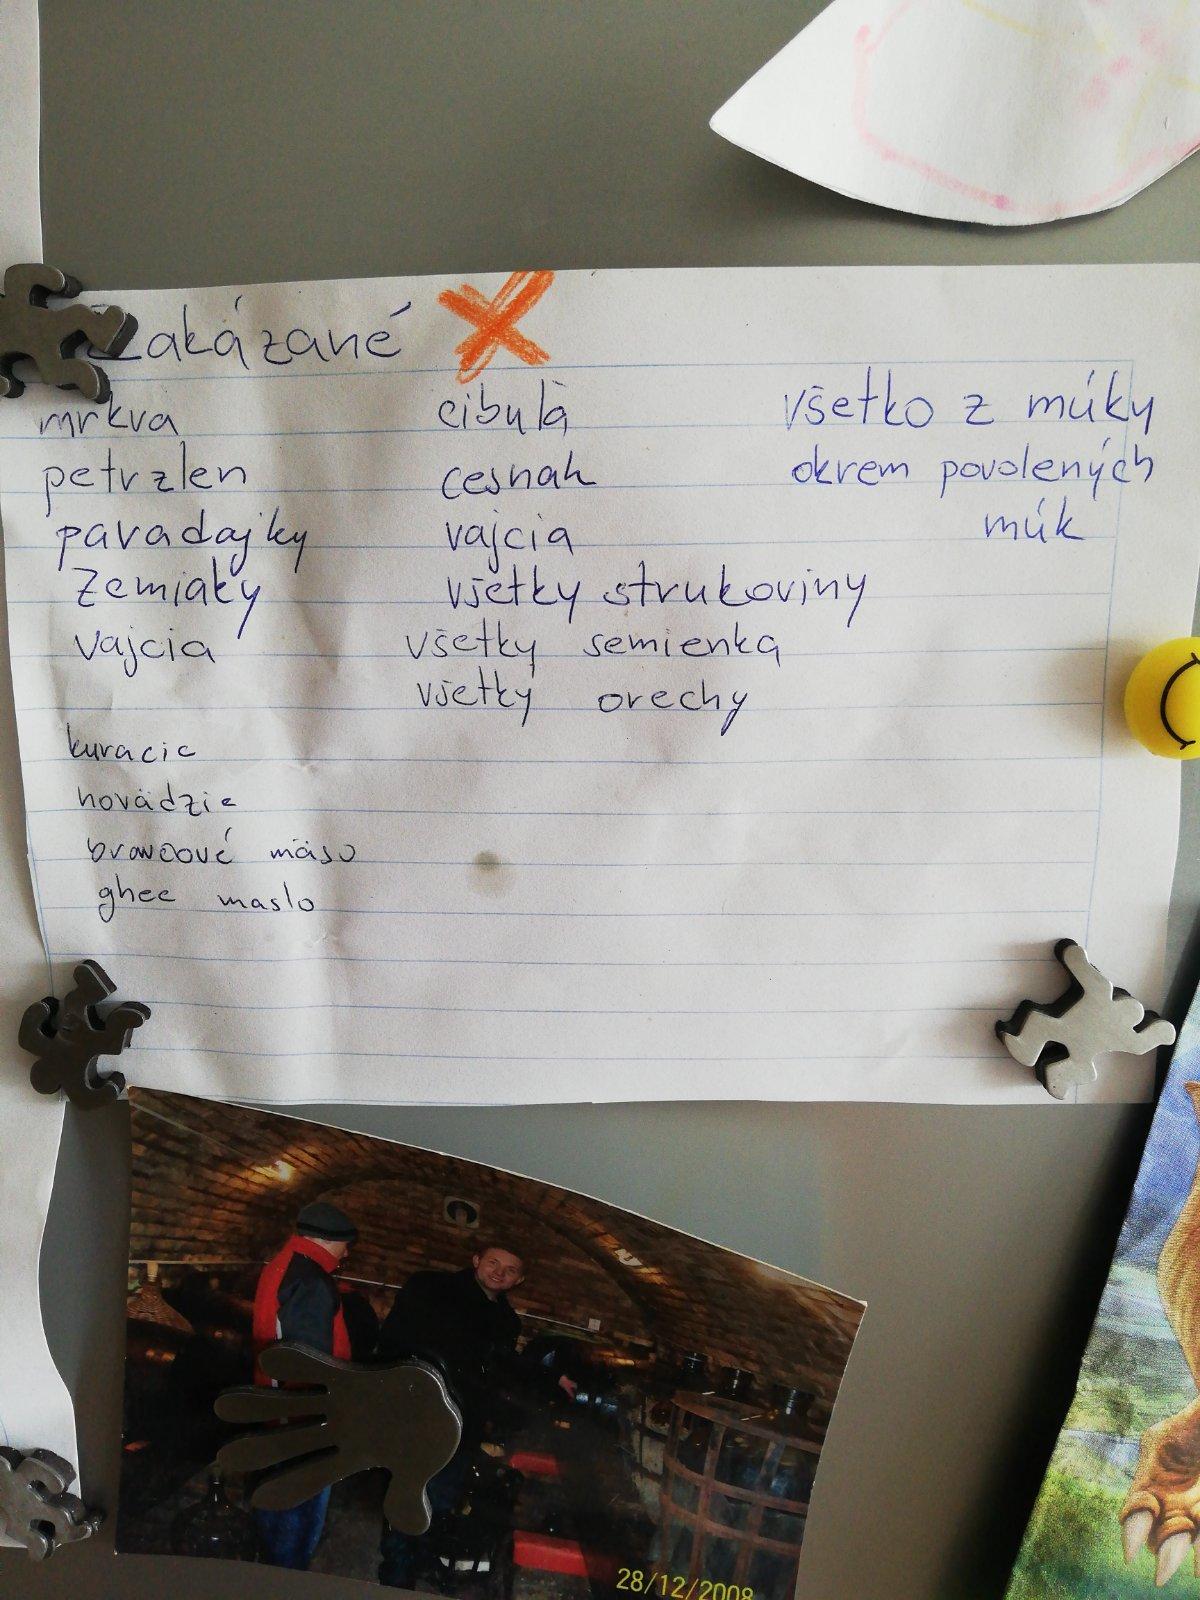 Zakázané
mrkva
petrzlen
paradajky
Zemiaky
vajcia
kuracie
hovädzie
bravčové mäso
ghee maslo
cibulà
cesnak
vajcia
všetky strukoviny
všetky semienka
všetky orechy
všetko z múky
okrem povolených
múk
28/12/2008